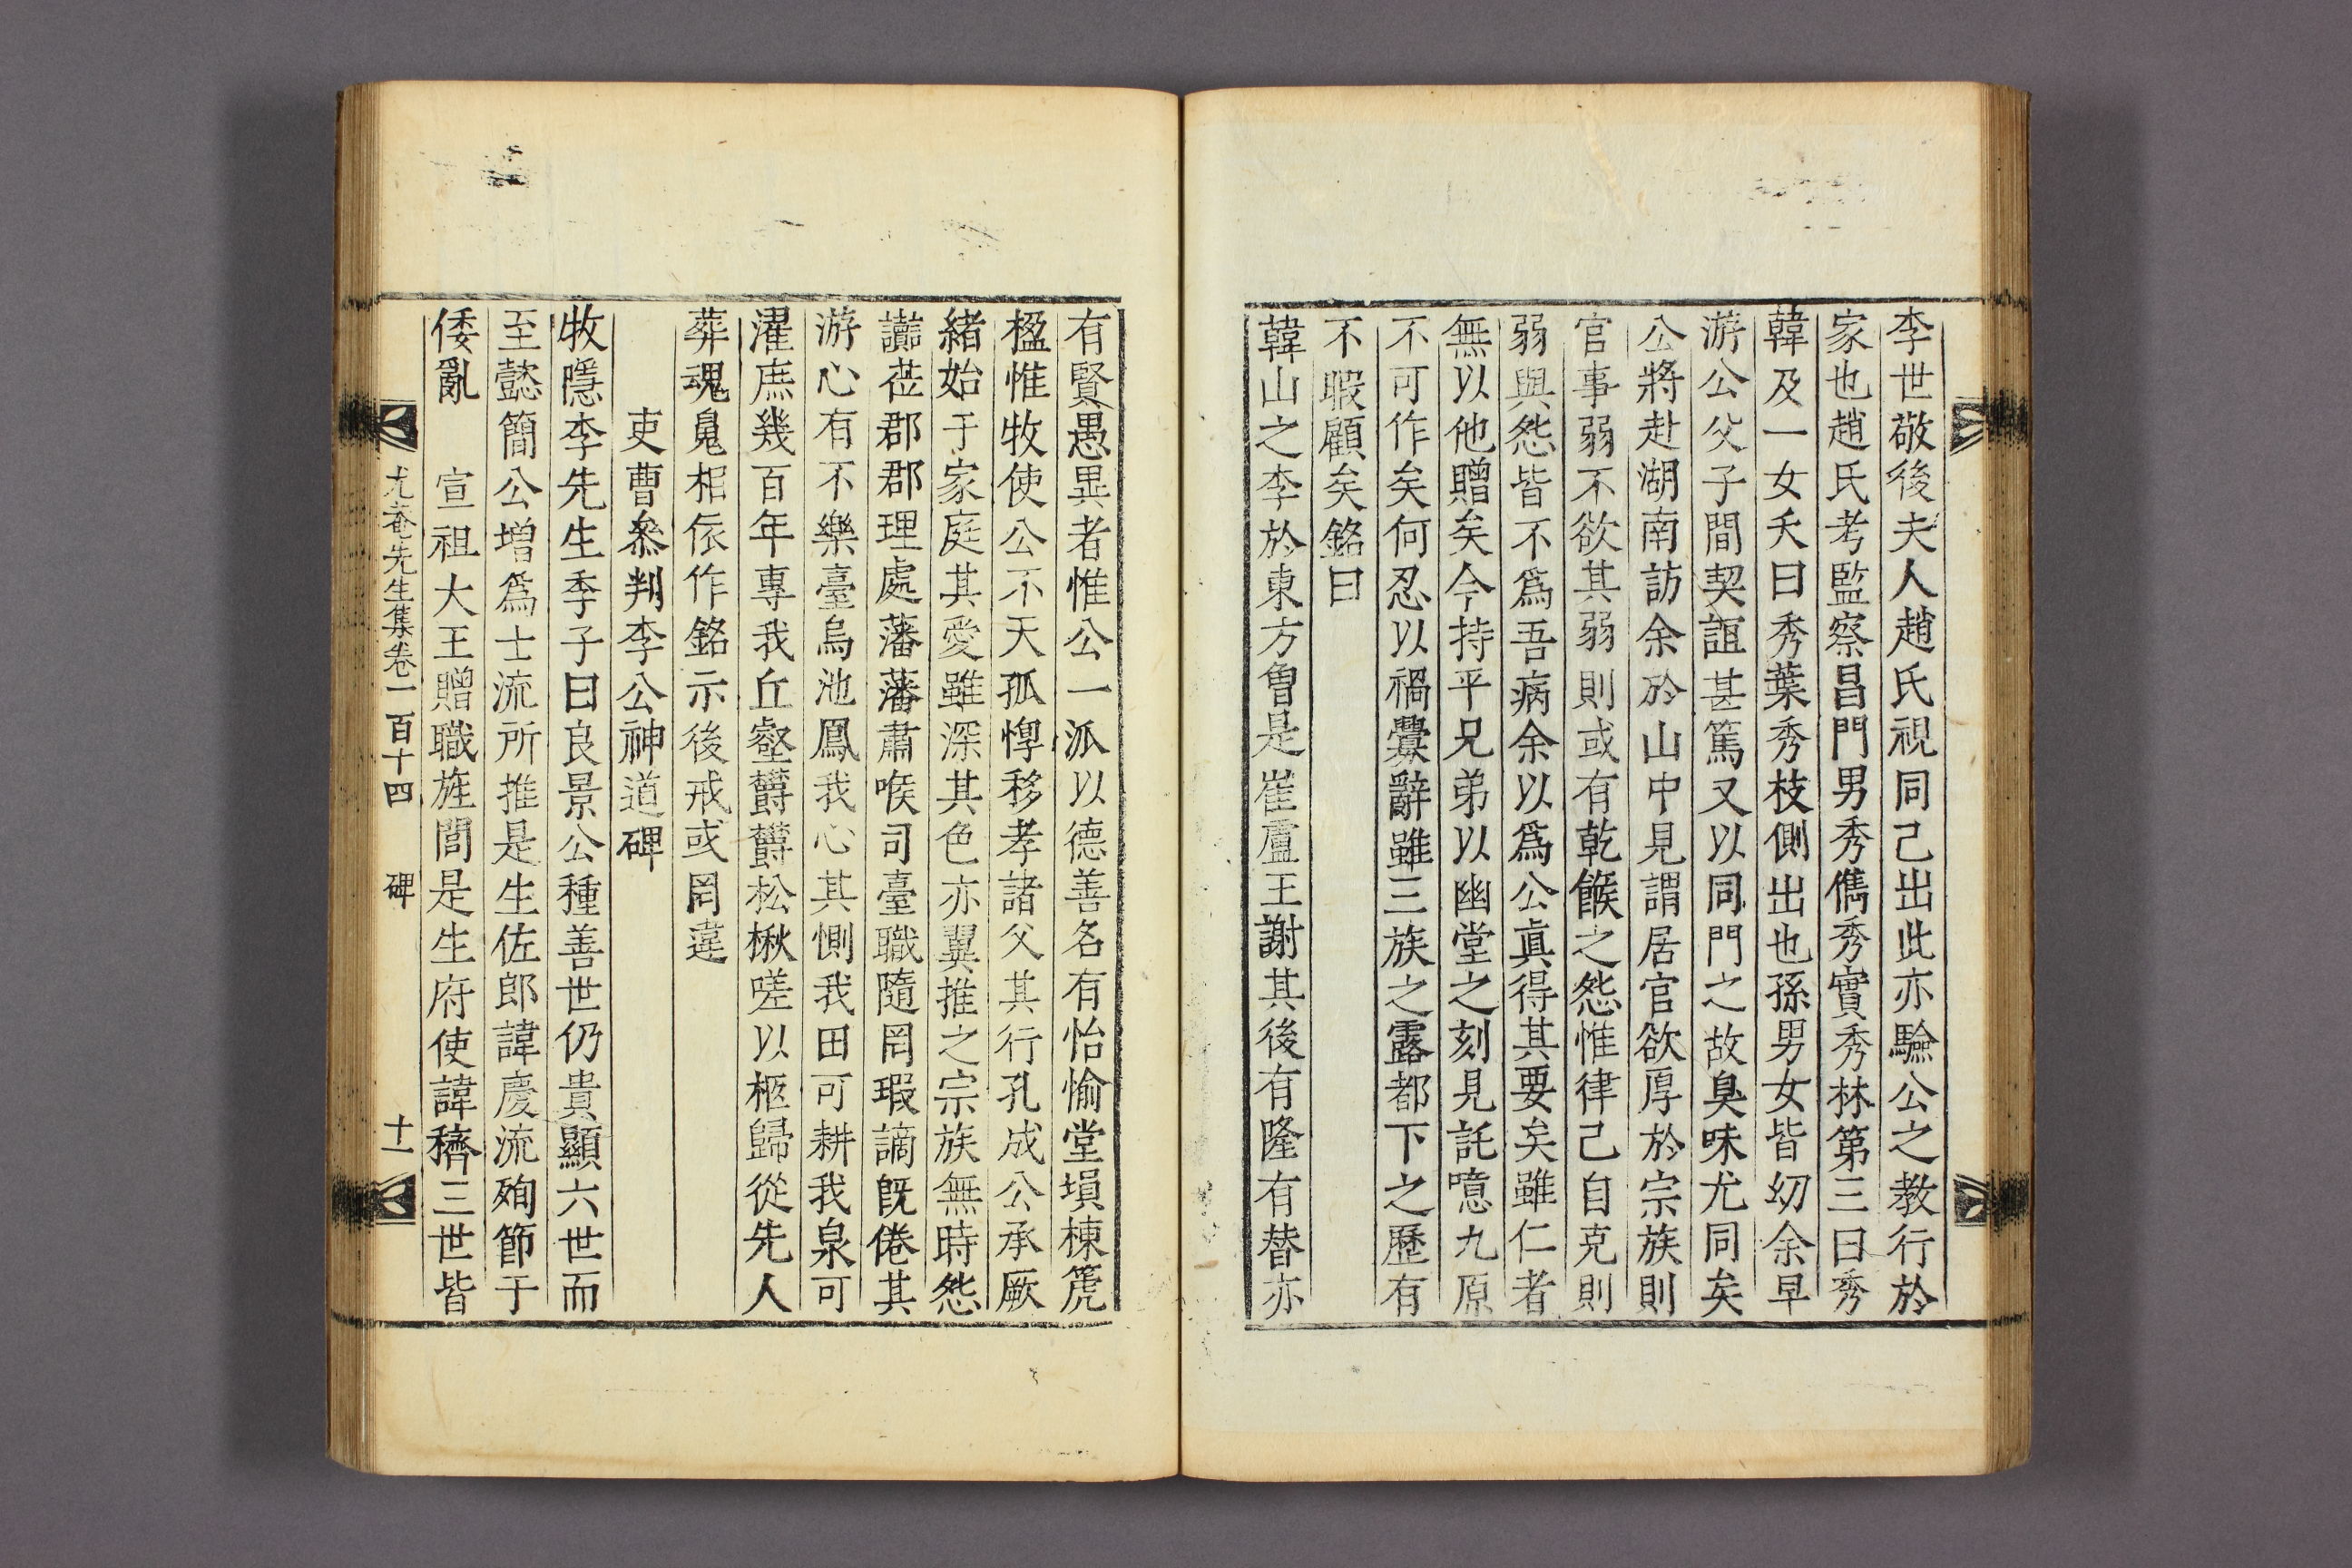 李世敬後夫人趙氏視同己出此亦驗公之教行於
家也趙氏考監察昌門男秀儁秀實秀林第三曰秀
韓及一女夭曰秀葉秀枝側出也孫男女皆幼余早
游公父子間契誼甚篤又以同門之故臭味尤同矣
公將赴湖南訪余於山中見謂居官欲厚於宗族則
官事弱不欲其弱則或有乾餱之怨惟律己自克則
弱與怨皆不爲吾病余以爲公眞得其要矣雖仁者
無以他贈矣今持平兄弟以幽堂之刻見託噫九原
不可作矣何忍以禍釁辭雖三族之露都下之歷有
不暇顧矣銘曰
韓山之李於東方曾是崔盧王謝其後有隆有替亦
有賢愚異者惟公一派以德善名有怡愉堂塤棟篪
楹惟牧使公不天孤惸移孝諸父其行孔成公承厥
緖始于家庭其愛雖深其色亦翼推之宗族無時怨
讟莅郡郡理處藩藩肅喉司臺職隨罔瑕謫旣倦其
游心有不樂臺烏池鳳我心其惻我田可耕我泉可
濯庶幾百年專我丘壑欝欝松楸嗟以柩歸從先人
葬魂鬼相依作銘示後戒或罔違
吏曹參判李公神道碑
牧隱李先生季子曰良景公種善世仍貴顯六世而
至懿簡公增爲士流所推是生佐郎諱慶流殉節于
倭亂　宣祖大王贈職旌閭是生府使諱穧三世皆
尤菴先生集卷一百十四　碑　十一